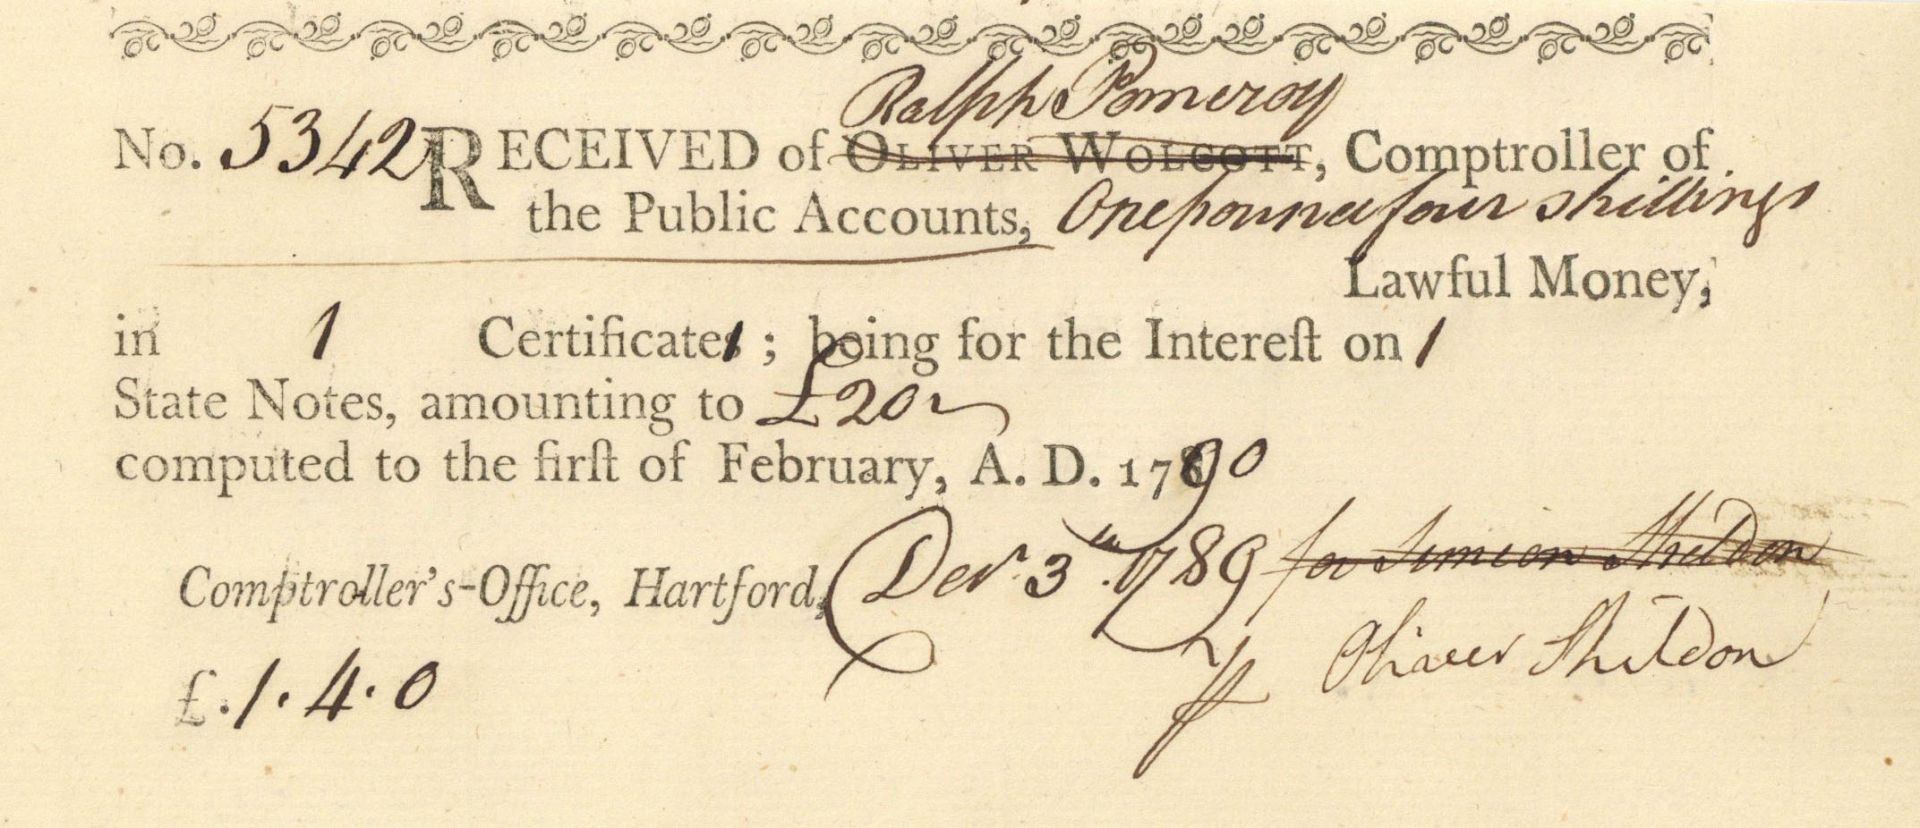 Ralph Pomeroy
No. 5342 RECEIVED of OLIVER WOLCOTT, Comptroller of
the Public Accounts, One pound four shillings
Lawful Money,
in 1 Certificates ; being for the Intereſt on 1
State Notes, amounting to £20
computed to the firſt of February, A. D. 1790
Comptroller's-Office, Hartford, Decr. 3th. 1789 for Simeon Sheldon
Oliver Sheldon
£. 1. 4. 0